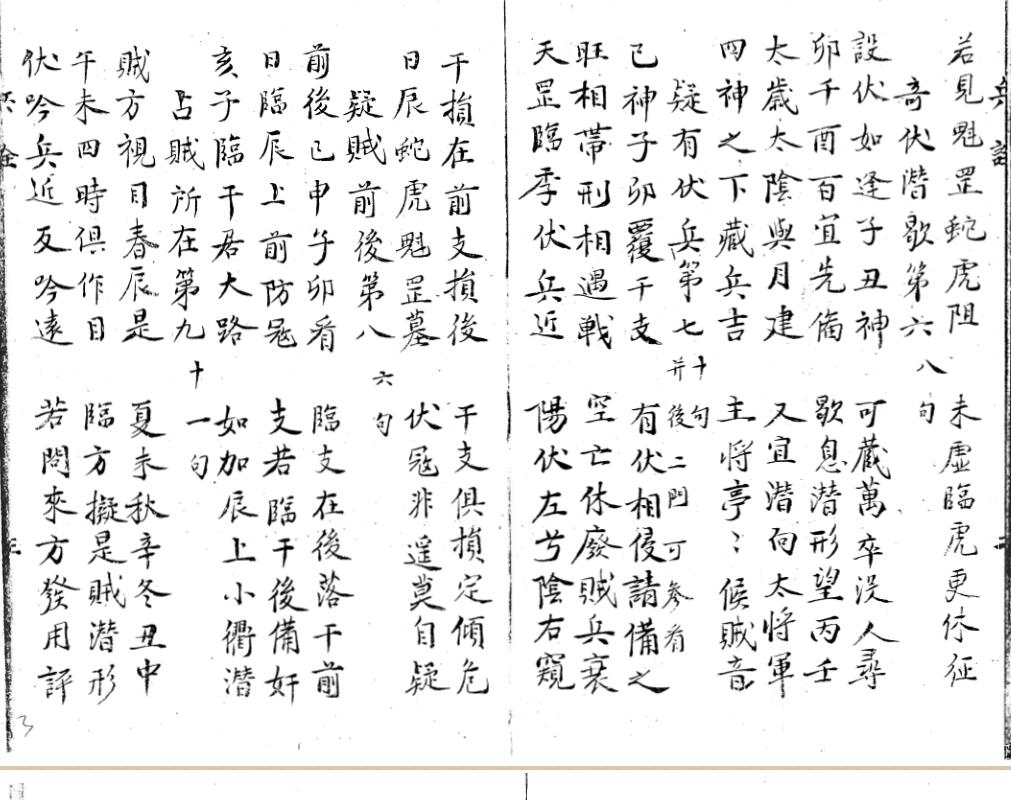 若見魁罡蛇虎阻　未虛臨虎更休征
奇伏潛歌第六八句
設伏如逢子丑神　可藏萬卒没人尋
卯千酉百宜先偹　歇息潛形望丙壬
太歲太陰與月建　又宜潛向太將軍
四神之下藏兵吉　主將亭〻候賊音
疑有伏兵第七十句并後二門可參看
已神子卯覆干支　有伏相侵請備之
旺相帶刑相遇戰　空亡休廢賊兵衰
天罡臨季伏兵近　陽伏左兮陰右窺
干損在前支損後　干支俱損定傾危
日辰蛇虎魁罡墓　伏冦非遥莫自疑
疑賊前後第八六句
前後已申子卯看　臨支在後落干前
日臨辰上前防冦　支若臨干後備奸
亥子臨干居大路　如加辰上小衢潛
占賊所在第九十一句
賊方視目春辰是　夏未秋辛冬丑申
午未四時俱作目　臨方擬是賊潛形
伏吟兵近反吟遠　若問來方發用評
三